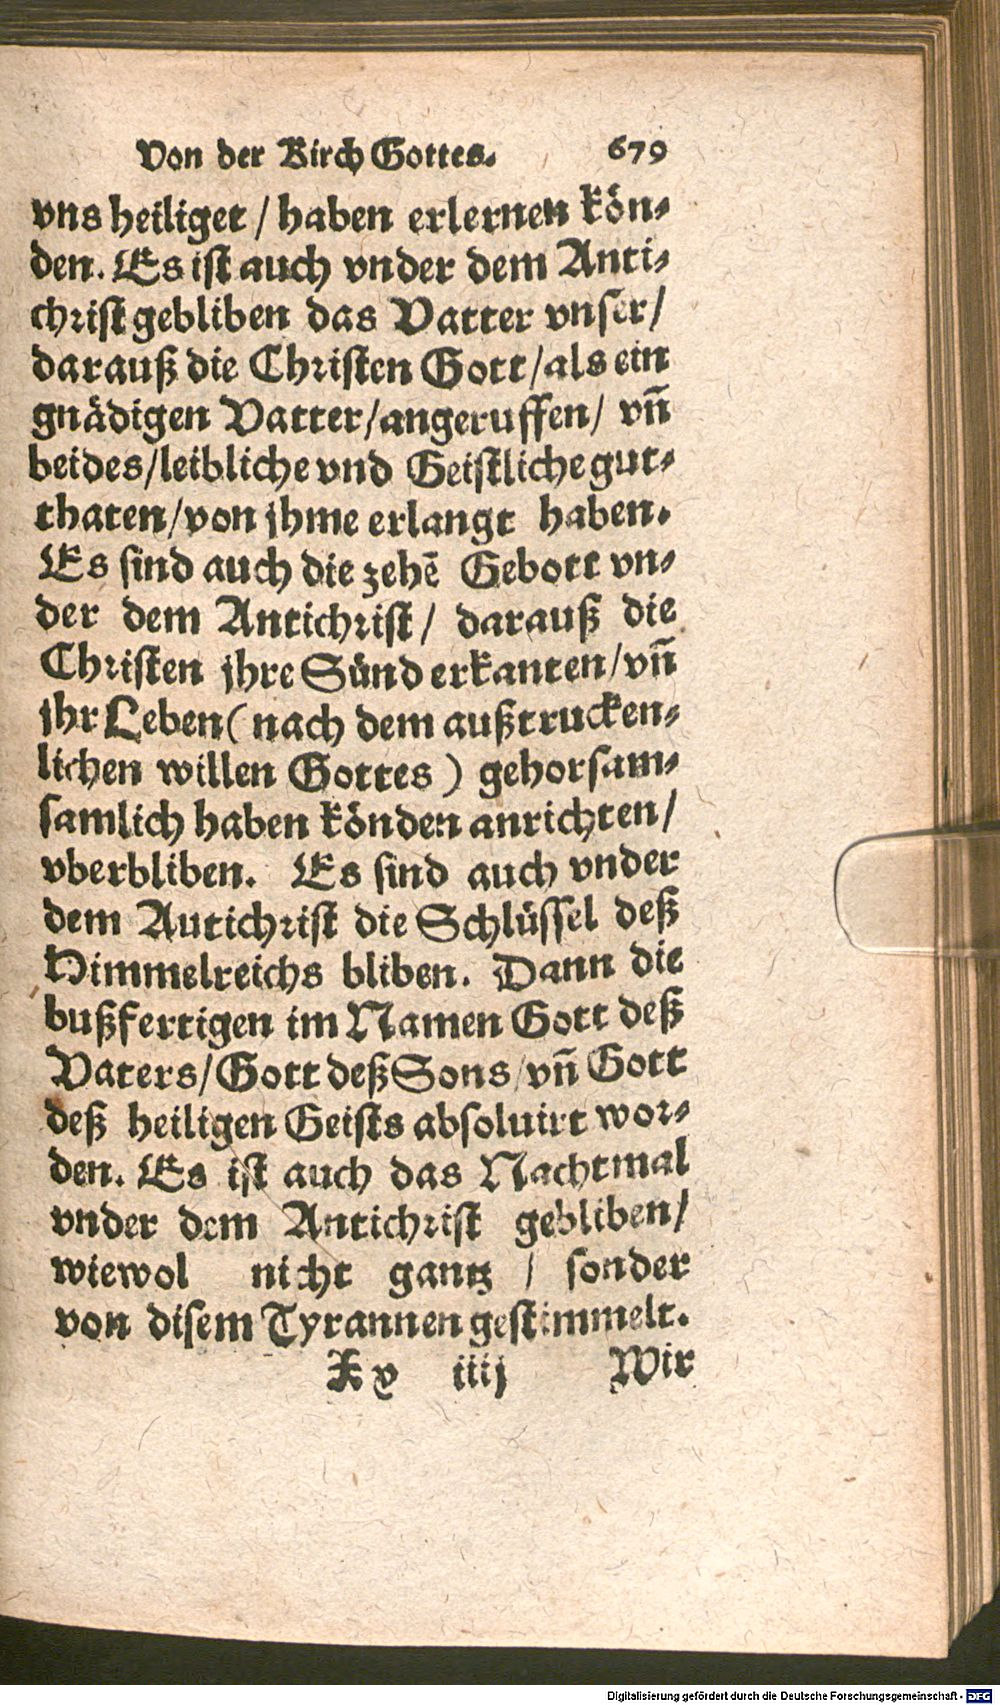 Von der Kirch Gottes. 679
vns heiliget / haben erlernen kön⸗
den. Es ist auch vnder dem Anti⸗
christ gebliben das Vatter vnser/
darauß die Christen Gott/als ein
gnädigen Vatter/angeruffen/ vñ
beides/leibliche vnd Geistliche gut⸗
thaten/von jhme erlangt haben.
Es sind auch die zehē Gebott vn⸗
der dem Antichrist/ darauß die
Christen jhre Sünd erkanten/vñ
jhr Leben (nach dem außtrucken⸗
lichen willen Gottes) gehorsam⸗
samlich haben könden anrichten/
vberbliben. Es sind auch vnder
dem Autichrist die Schlüssel deß
Himmelreichs bliben. Dann die
bußfertigen im Namen Gott deß
Vaters/Gott deß Sons/vñ Gott
deß heiligen Geists absoluirt wor⸗
den. Es ist auch das Nachtmal
vnder dem Antichrist gebliben/
wiewol nicht gantz / sonder
von disem Tyrannen gestimmelt.
Xx iiij Wir
Digitalisierung gefördert durch die Deutsche Forschungsgemeinschaft - DFG